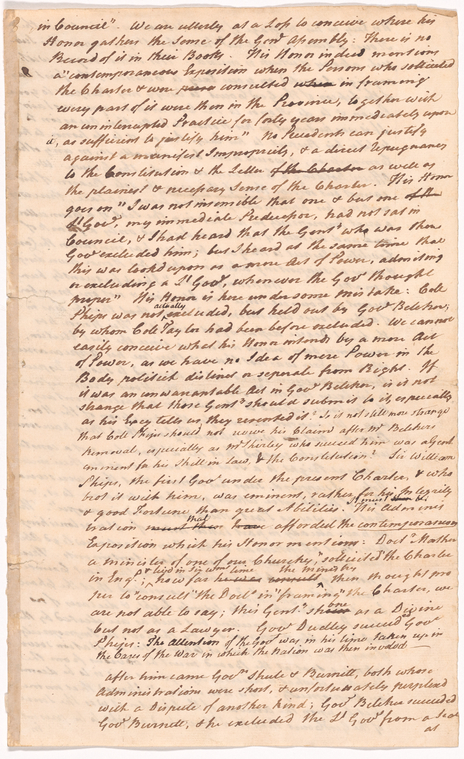 in Council". We are utterly at a Loss to conceive where his
Honor gathers the Sense of the Genl Assembly: There is no
Record of it in their Books. His Honor indeed mentions
a "contemporaneous Exposition when the Persons who sollicited
the Charter & were consulted when in framing
every part of it were then in the Province, together with
an uninterrupted Practice for forty years immediately upon
it, as sufficient to justify him" No Precedents can justify
against a manifest Impropriety, & a direct Repugnancy
to the Constitution & the Letter of the Charter as well as
the plainest & necessary Sense of the Charter. His Honor
goes on "I was not insensible that one & but one of the
Lt Govr, my immediate Predecessor, had not sat in
Council, & I had heard that the Gent who was then
Govr excluded him; but I heard at the same time that
this was lookd upon as a mere Act of Power, admitting
or excluding a Lt Govr, whenever the Govr thought
proper" His Honor is here under some mistake: Coll
Phips was not actually excluded, but held out by Govr Belcher,
by whom Coll Taylor had been before excluded. We cannot
easily conceive what his Honor intends by a mere Act
of Power, as we have no Idea of mere Power in the
Body politick distinct or seperate from Right. If
it was an unwarrantable Act in Govr Belcher, is it not
strange that those Gent should submit to it, especially
as his Excy tells us, they resented it? Is it not still more strange
that Coll Phips should not renew his Claim after Mr Belchers
removal, especially as Mr Shirley who succeed him was a Gent
eminent for his Skill in Law, & the Constitution? Sir William
Phips, the first Govr under the present Charter, & who
brot it with him, was eminent, rather for his Integrity
& good Fortune than great Abilities. His Adminis
tration must that have afforded the contemporaneous
Exposition which his Honor mentions: Doctr Mather
a minister of one of our Churches, "sollicited" the Charter
in Engd, how far the ministry then thought pro
per to "consult" the Doctr in "framing" the Charter, we
are not able to say; this Gent shone as a Divine
but not as a Lawyer. Govr Dudley succeed Govr
Phips: The Attention of the Govr was in his time taken up in
the Cares of the War in which the Nation was then involvd
after him came Govrs Shute & Burnett, both whose
Administrations were short, & unfortunately perplexd
with a Dispute of another kind; Govr Belcher succeeded
Govr Burnett, & he excluded the Lt Govr from a Seat
at